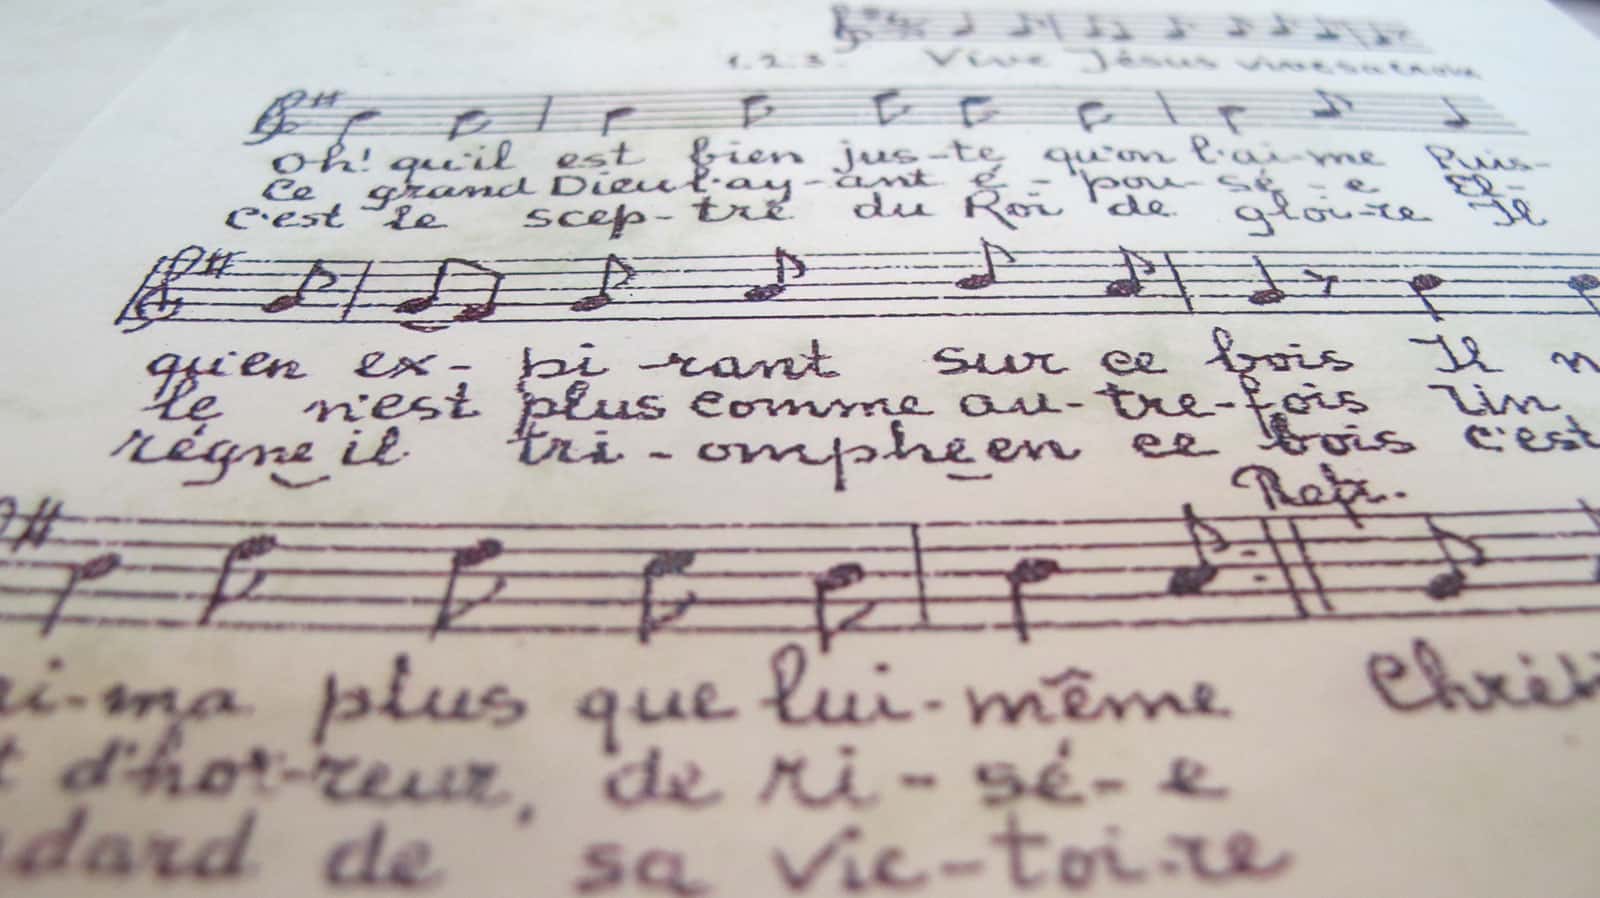 1.2.3. Vive Jésus vive sa croix
Oh! qu'il est bien jus-te qu'on l'ai-me Puis-
Ce grand Dieu l'ay-ant é-pou-sé-e El-
C'est le scep-tre du Roi de gloi-re Il
qu'en ex-pi-rant sur ce bois Il n
le n'est plus comme au-tre-fois Un
régne il tri-omphe en ce bois c'est
Refr.
ai-ma plus que lui-même Chréti
t d'hor-reur, de ri-sé-e
dard de sa vic-toi-re